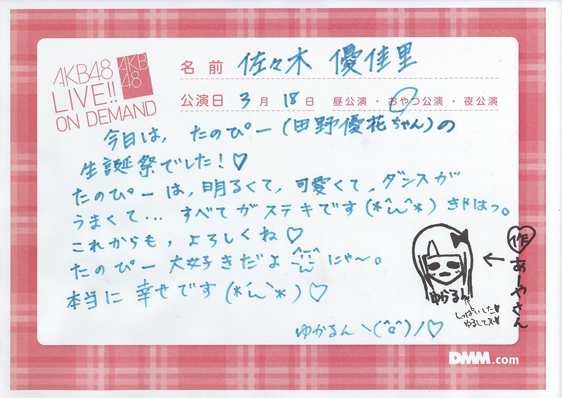 AKB48
LIVE!!
ON DEMAND
AKB
48
名前 佐々木 優佳里
公演日 3月18日 昼公演・おやつ公演・夜公演
今日は、たのぴー(田野優花ちゃん)の
生誕祭でした!♡
たのぴーは、明るくて、可愛くて、ダンスが
うまくて... すべてがステキです(*^ω^*)きゃはっ。
これからも、よろしくね♡
たのぴー大好きだよ にゃ〜。
本当に幸せです(*´ω`*)♡
ゆかるんヽ(^o^)ノ♡
ゆかるん
←
作 あーやさん
しっぱいした
ゆるしてネ
DMM.com